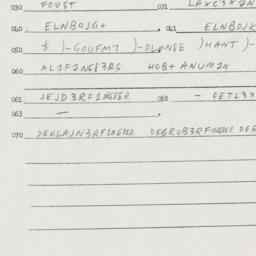 030 FOUST 031 LAXC3X2N-
040 ELNBOJG+ 041 ELNBOJK
050 $ )-GOUFM7 )-DLANSE )HANT )-
060 AL1F1NG83RS HOB+ ANUM1N
061 JEJD3RF1NG8ER 062 - DETL3X
063 —
070 DEKLAJN3RF1NG8ER DEGROB3RF1NG8ER DER